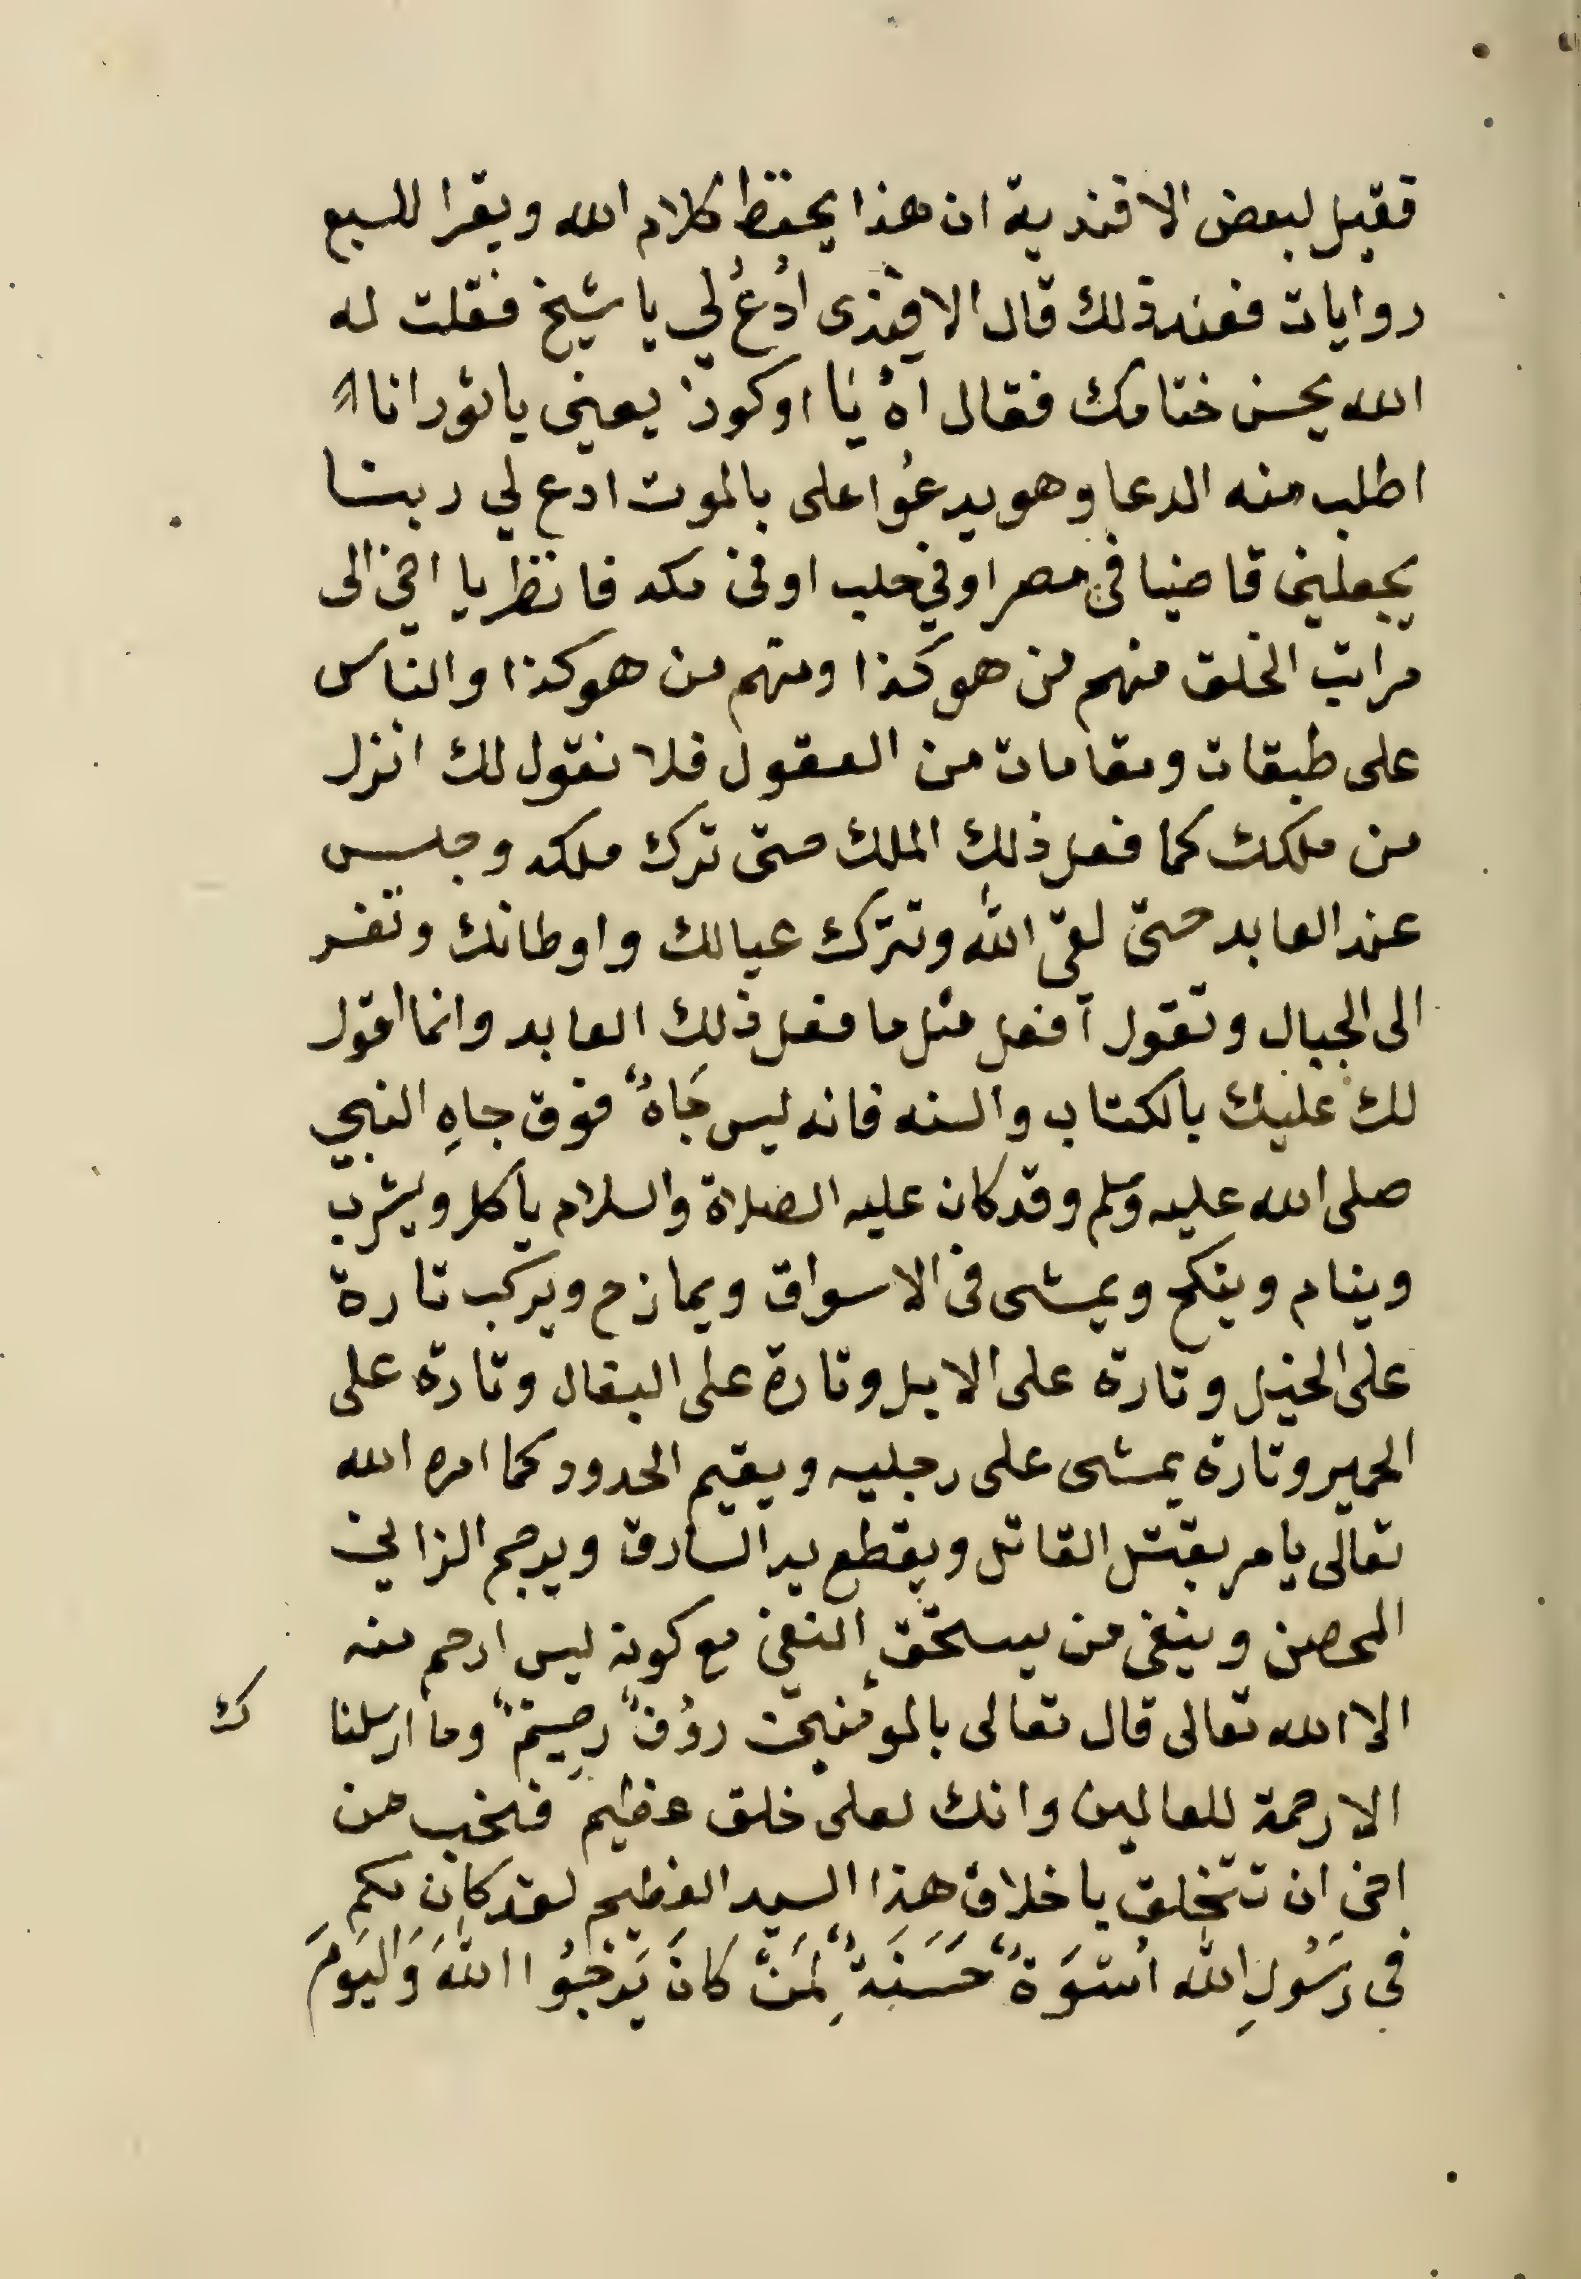 فقيل لبعض الافندية ان هذا يحفظ كلام الله ويقرا للسبع
روايات فعند ذلك قال الافندى ادُعُ لي يا شيخ فقلت له
الله يحسن ختامك فقال آهْ يَا اوكوذ يعنى يا ثور انا
اطلب منه الدعا وهو يدعُوا على بالموت ادع لي ربنا
يجعلنى قاضيا فى مصر او في حلب او فى مكه فانظر يا اخى الى
مراتب الخلق منهم من هو كذا ومنهم من هو كذا والناس
على طبقات ومقامات من العقول فلا نقول لك انزل
من ملكك كما فعل ذلك الملك حتى ترك ملكه وجلس
عند العابد حتى لقى الله وتترك عيالك واوطانك وتفر
الى الجبال وتقول آفعل مثل ما فعل ذلك العابد وانما اقول
لك عليك بالكتاب والسنه فانه ليس جَاهٌ فوق جاهِ النبى
صلى الله عليه وسلم وقد كان عليه الصلاة والسلام ياكل ويشرب
وينام وينكح ويمشى فى الاسواق ويمازح ويركب تارة
على الخيل وتارة على الابل وتارة على البغال وتارة على
الحمير وتارة يمشى على رجليه ويقيم الحدود كما امره الله
تعالى يامر بقتل القاتل ويقطع يد السارق ويرجم الزانى
المحصن وينفى من يستحق النفى مع كونه ليس ارحم منه
الا الله تعالى قال تعالى بالمؤمنين روُفٌ رحِيمٌ وما ارسلنا ك
الا رحمة للعالمين وانك لعلى خلق عظيم فنحب من
اخى ان تتخلق باخلاق هذا السيد العظيم لقد كان لكم
فى رَسُولِ الله اُسْوَةٌ حَسَنَةٌ لِمَنْ كَانَ يَرْجُوا اللهَ وَاليَومَ